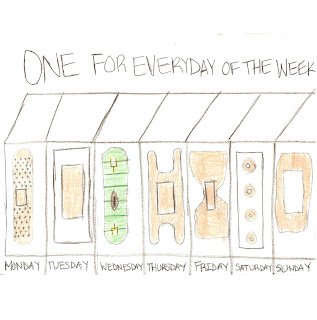 ONE FOR EVERYDAY OF THE WEEK
MONDAY TUESDAY WEDNESDAY THURSDAY FRIDAY SATURDAY SUNDAY